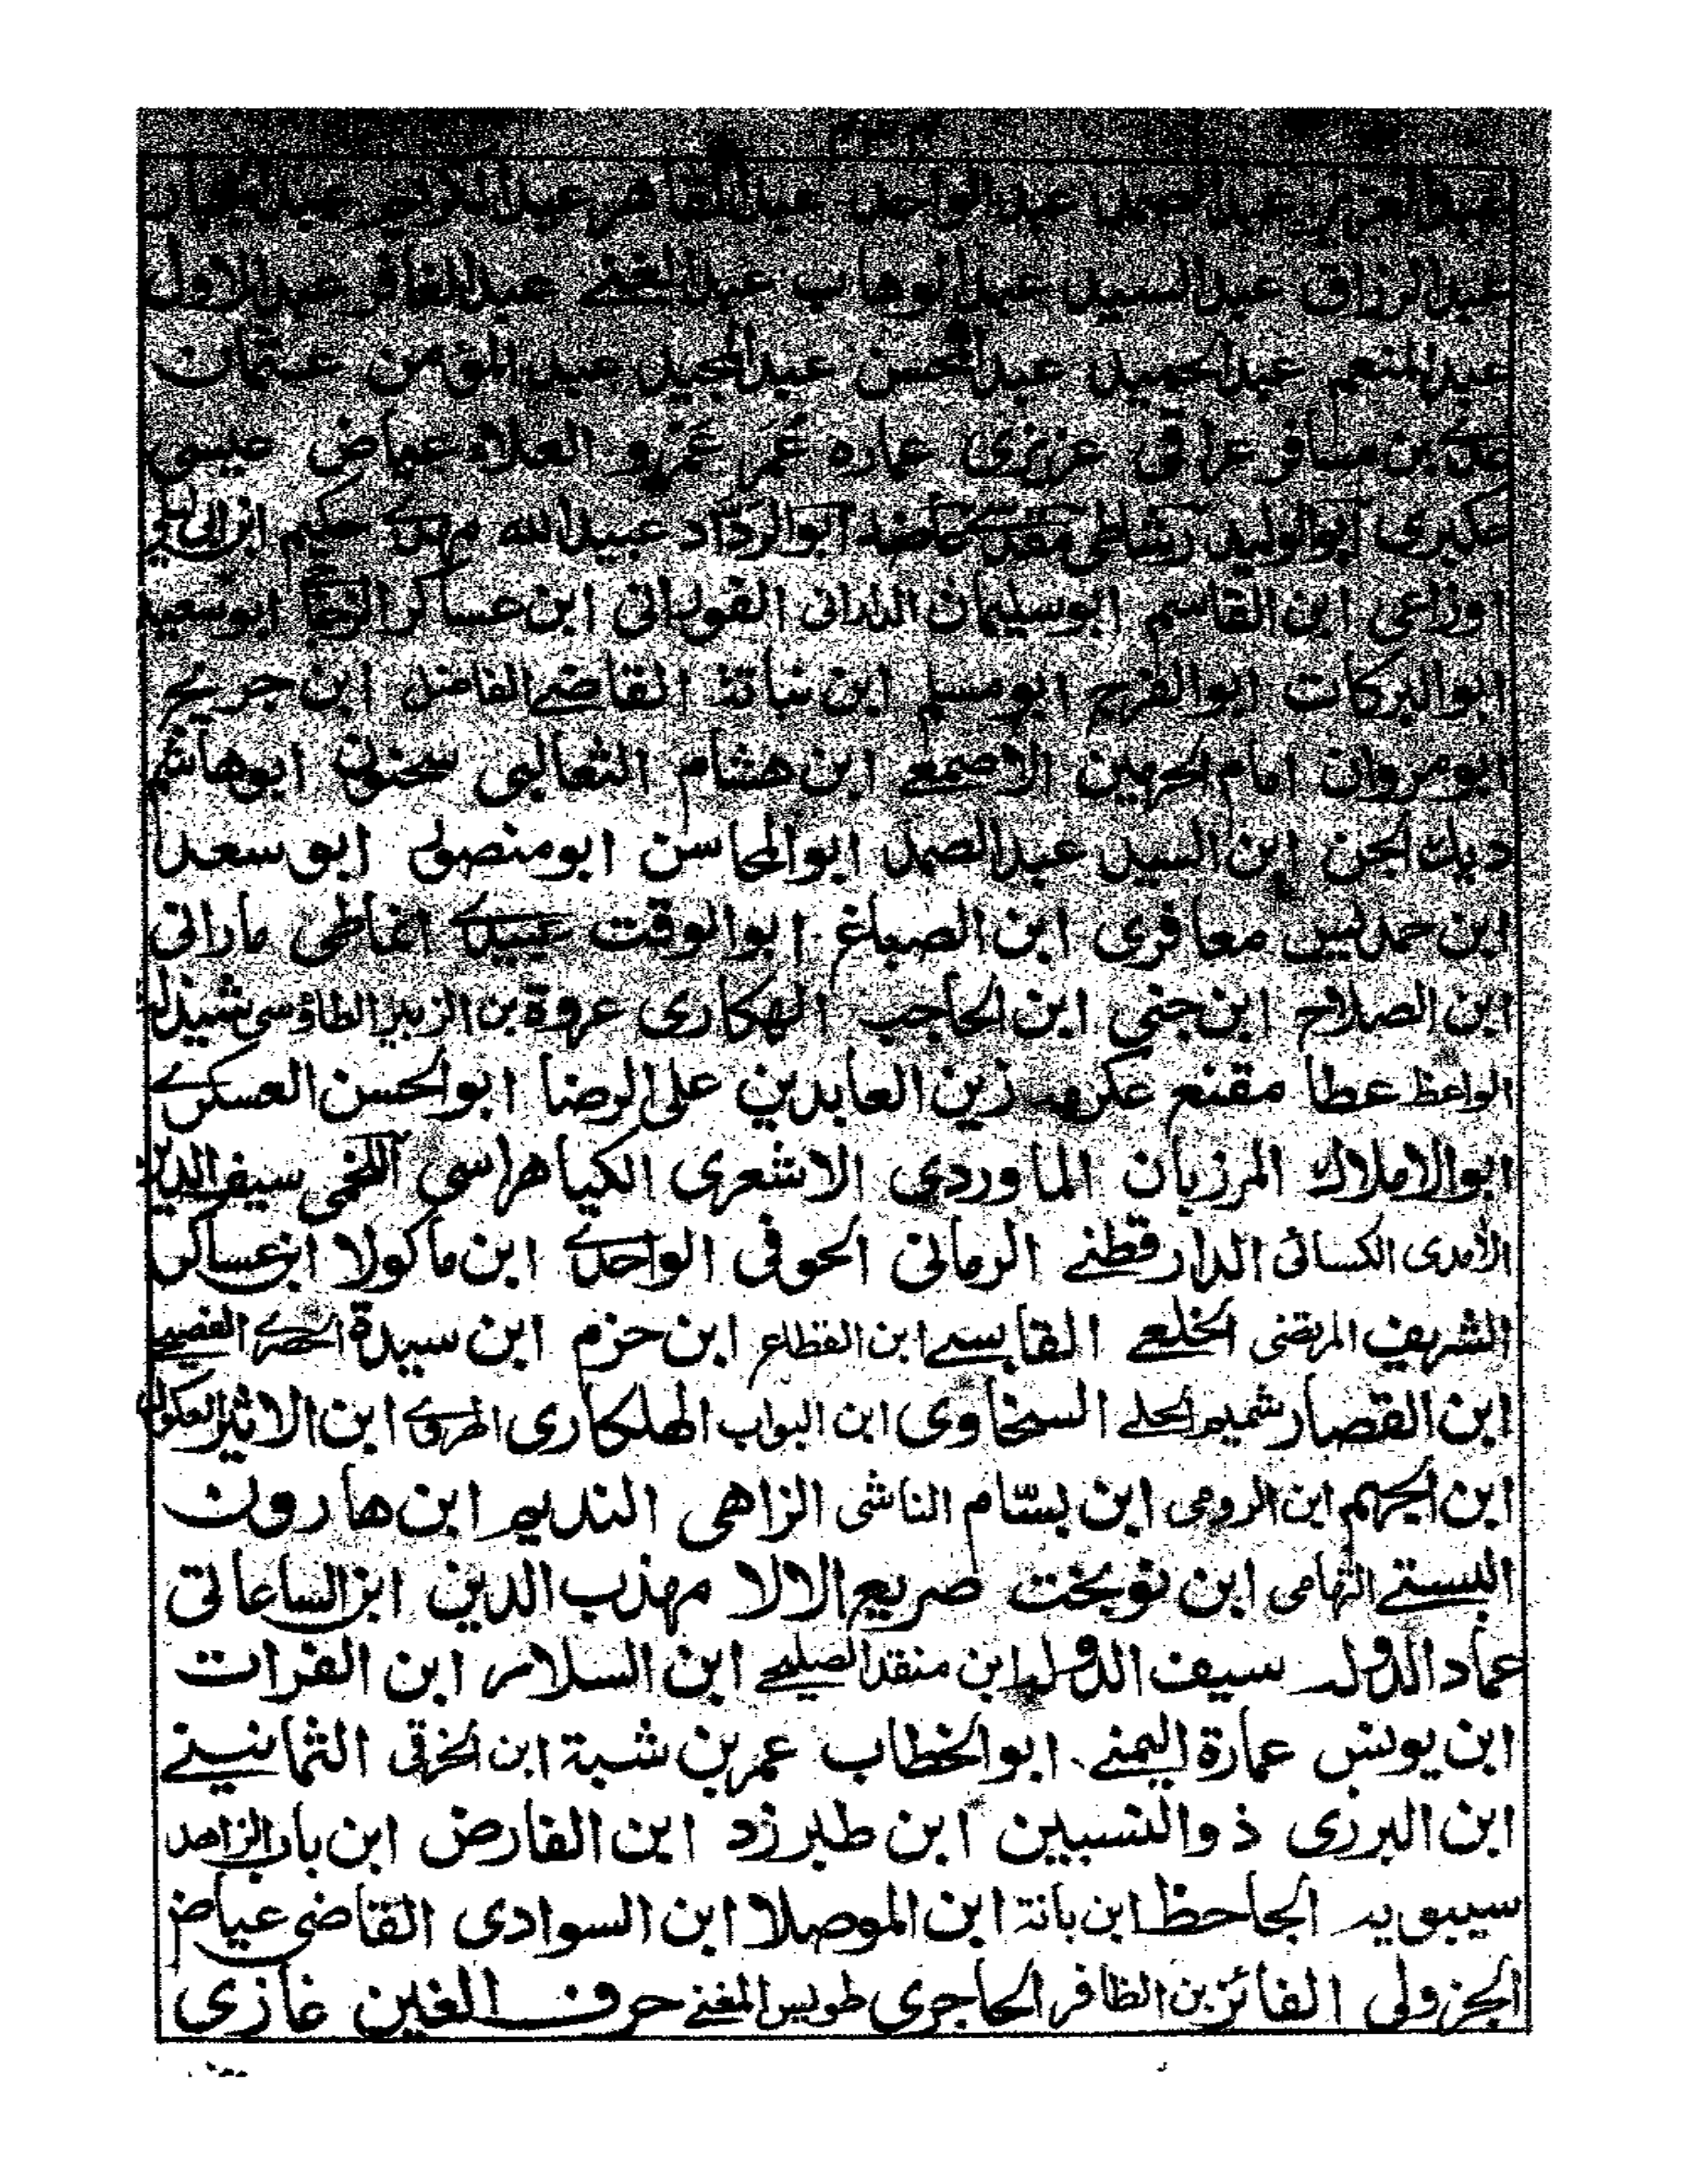 عبدالعزيز عبدالصمد عبدالواحد عبدالقاهر عبدالكريم عبدالجبار
عبدالرزاق عبدالسيد عبدالوهاب عبدالغني عبدالغافر عبدالاول
عبدالمنعم عبدالحميد عبدالمحسن عبدالمجيد عبدالمؤمن عثمان
عدي بن مسافر عراقي عزيزى عماره عُمَر عَمْرو العلاء عياض عيسى
عكبرى ابوالوليد رشاطى ابوالردّاد عبيدالله مهدي حكيم
اوزاعى ابن القاسم ابوسليمان الدارانى الفورانى ابن عساكر ابوسعيد
ابوالبركات ابوالفرج ابومسلم ابن نباتة القاضي الفاضل ابن جريج
ابومروان امام الحرمين الاصمعي ابن هشام الثعالبى سحنون ابوهاشم
ديك الجن ابن السيد عبدالصمد ابوالمحاسن ابومنصور ابوسعد
ابن حمديس معافرى ابن الصباغ ابوالوقت عبيدي مارانى
ابن الصلاح ابن جنى ابن الحاجب الهكارى عروة بن الزبير الطاؤسى شيذله
الواعظ عطا مقنع عكرمه زين العابدين على الرضا ابوالحسن العسكري
ابوالاملاك المرزبان الماوردي الاشعرى الكيا هراسى اللخمى سيف الدين
الآمدى الكسائى الدارقطني الرمانى الحوفى الواحدي ابن ماكولا ابن عساكر
الشريف المرتضى الخلعي القابسي ابن القطاع ابن حزم ابن سيدة الحصري الفصيحي
ابن القصار شميم الحلي السخاوى ابن البواب الهلكارى الهروي ابن الاثير العكوك
ابن الجهم ابن الرومى ابن بسّام الناشى الزاهى النديم ابن هارون
البستي التهامى ابن نوبخت صريع الالا مهذب الدين ابن الساعاتى
عماد الدوله سيف الدوله ابن منقذ الصليحي ابن السلار ابن الفرات
ابن يونس عمارة اليمني ابوالخطاب عمر بن شبة ابن الخرقى الثمانيني
ابن البرزى ذوالنسبين ابن طبرزد ابن الفارض ابن باب الزاهد
سيبويه الجاحظ ابن بانة ابن الموصلا ابن السوادى القاضى عياض
الجزولى الفائز بن الظافر الحاجرى طويس المغني حرف الغين غازى